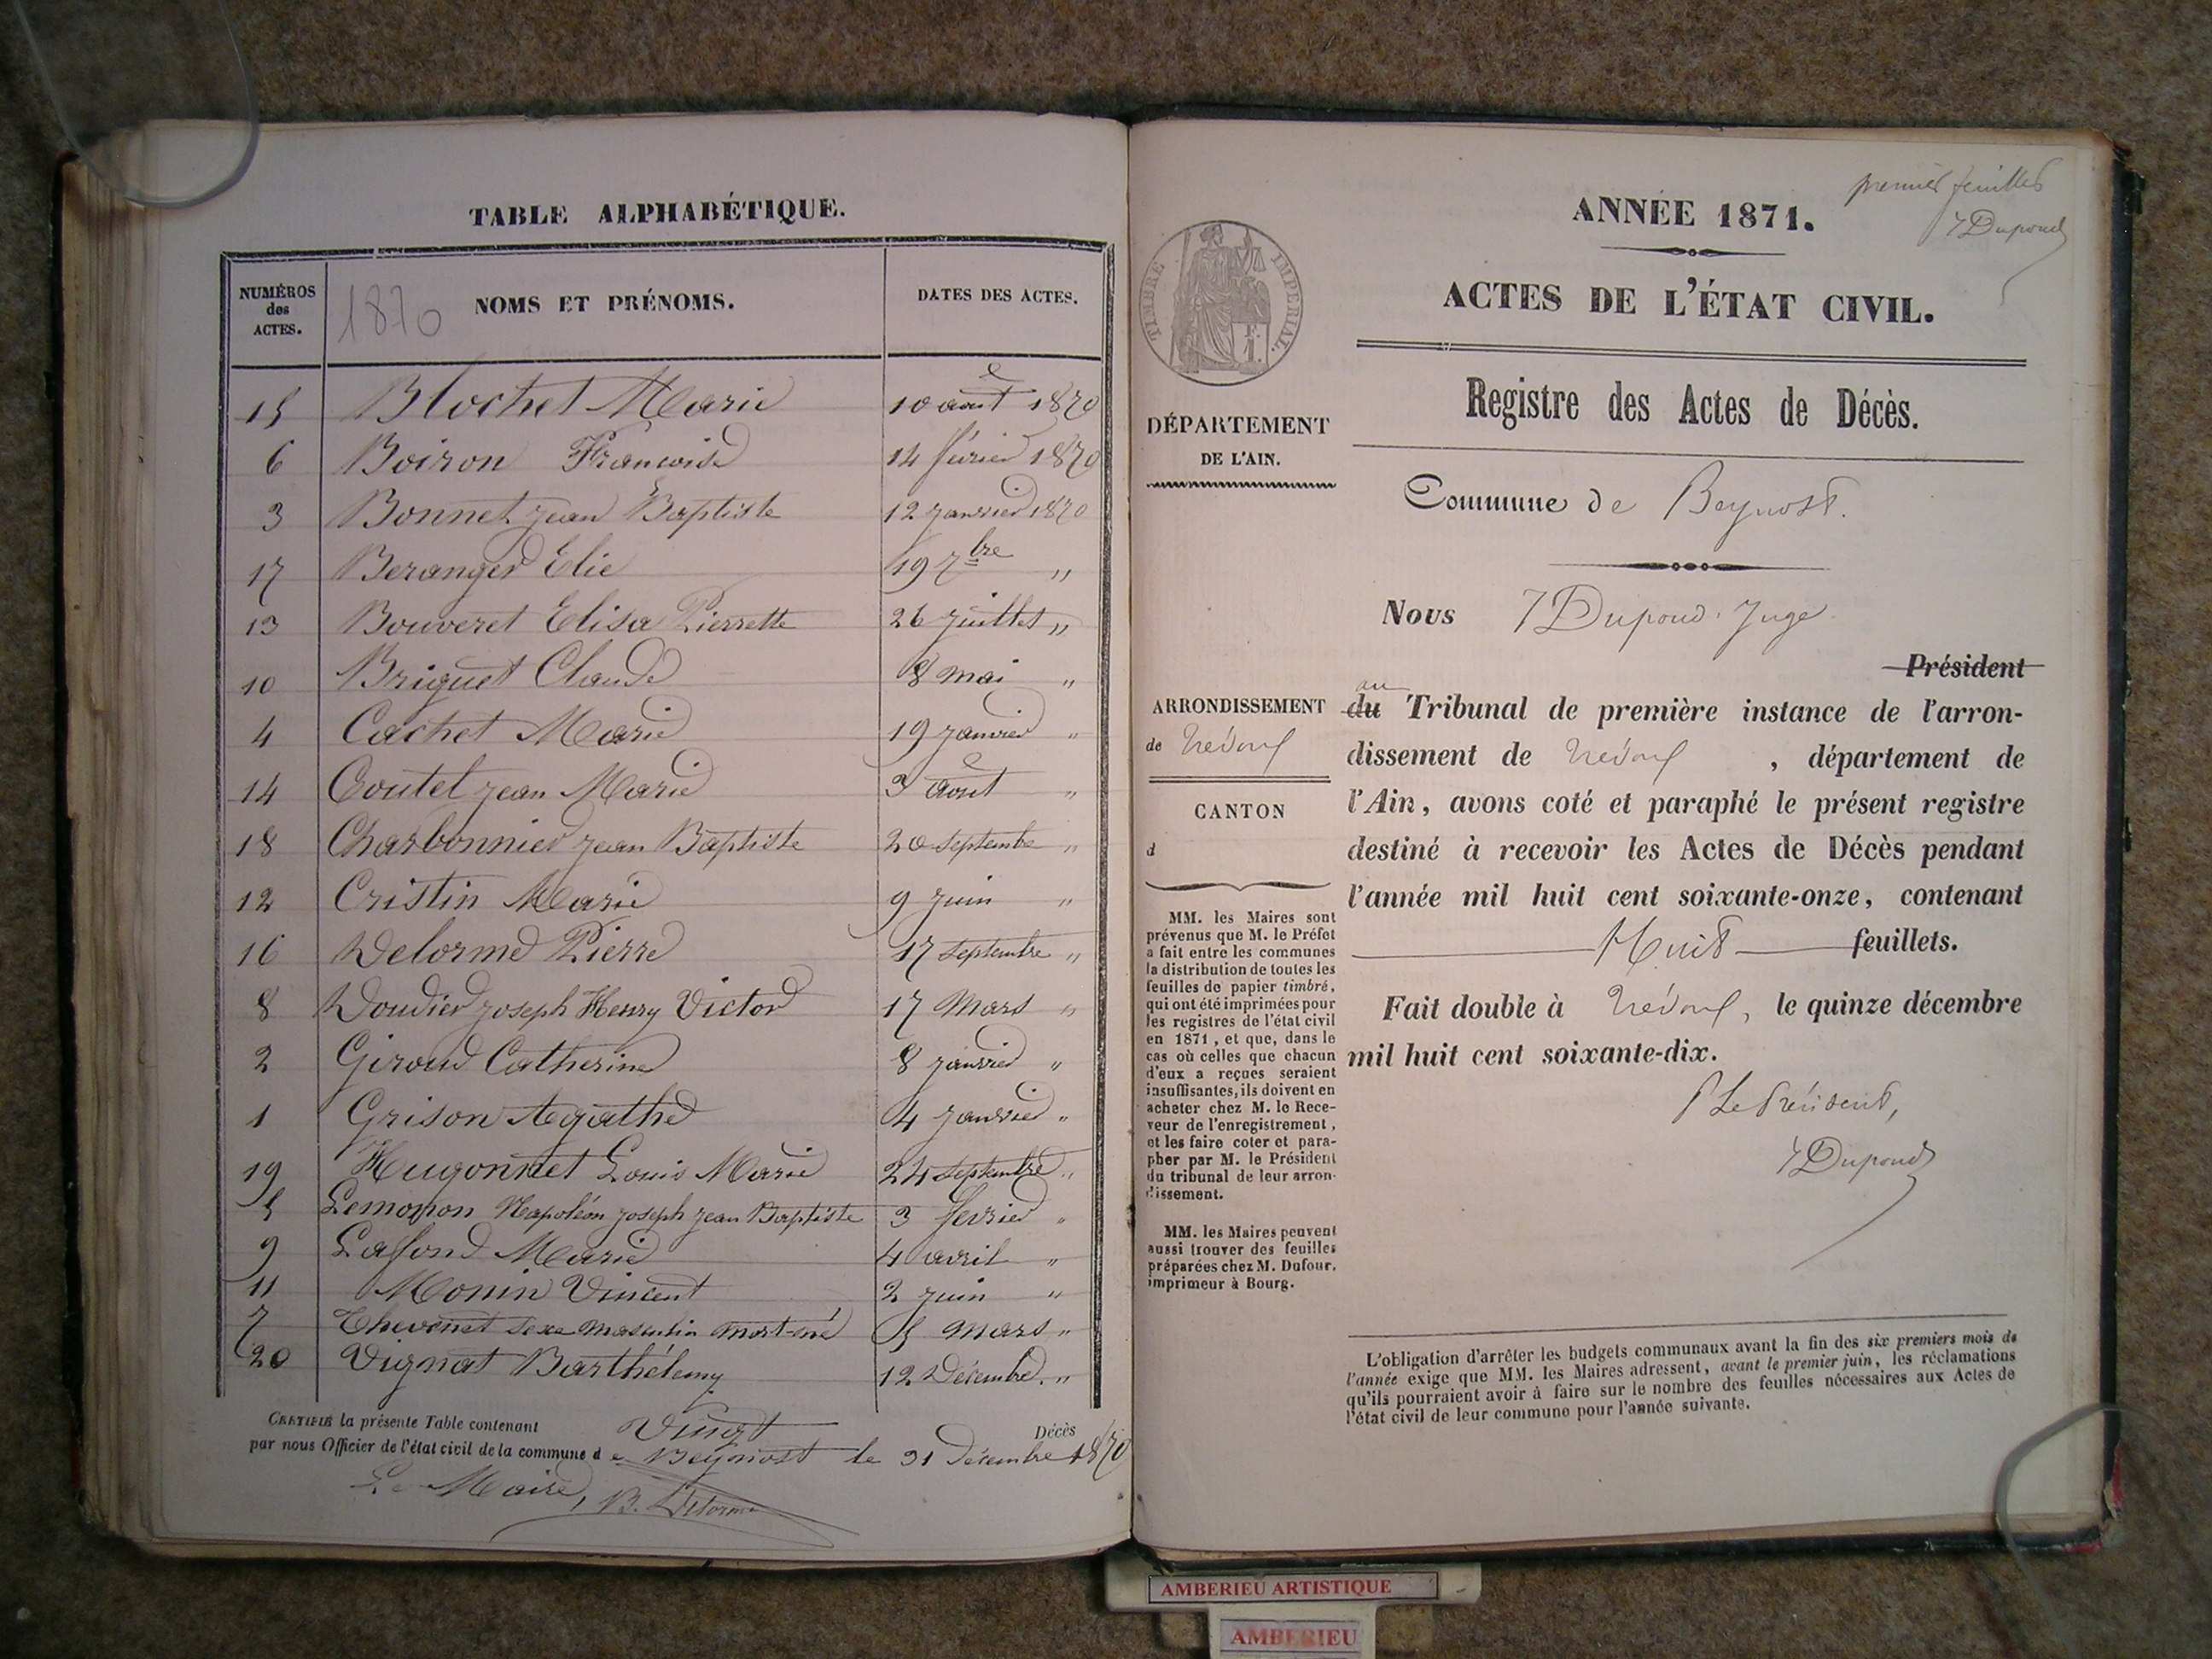 TABLE ALPHABÉTIQUE.
NUMÉROS des ACTES.
1870 NOMS ET PRÉNOMS.
DATES DES ACTES.
15 Blochet Marie 10 aout 1870
6 Boiron Francoise 14 févier 1870
3 Bonnet jean Baptiste 12 janvier 1870
17 Beranger Elie 19 7bre "
13 Bouveret Elisa Pierrette 26 juillet "
10 Briguet Claude 8 mai "
4 Cachet Marie 19 janvier "
14 Coutet jean Marie 3 aout "
18 Charbonnier jean Baptiste 20 septembre "
12 Cristin Marie 9 juin "
16 Delorme Pierre 17 septembre "
8 Doudier joseph Henry Victor 17 Mars "
2 Giroud Catherine 8 janvier "
1 Grison Agathe 4 janvier "
19 Hugonnet Louis Marie 24 septembre "
5 Lemopon Napoléon joseph jean Baptiste 3 fevrier "
9 Laffond Marie 4 avril "
11 Monin Vincent 2 juin "
7 Thevenet sexe masculin mort-né 5 mars "
20 Vignat Barthélemy 12 Décembre "
CERTIFIÉ la présente Table contenant Vingt Décès
par nous Officier de l'état civil de la commune de Beynost le 31 Décembre 1870
Le Maire, B. Delorme
premier feuillet
Dupond
ANNÉE 1871.
ACTES DE L'ÉTAT CIVIL.
TIMBRE IMPÉRIAL.
1 F.
Registre des Actes de Décès.
DÉPARTEMENT
DE L'AIN.
Commune de Beynost.
Nous Dupond Juge
Président
au
ARRONDISSEMENT
de Trévoux
CANTON
d
du Tribunal de première instance de l'arron-
dissement de Trévoux , département de
l'Ain, avons coté et paraphé le présent registre
destiné à recevoir les Actes de Décès pendant
l'année mil huit cent soixante-onze, contenant
Huit feuillets.
Fait double à Trévoux, le quinze décembre
mil huit cent soixante-dix.
P Le Président,
Dupond
MM. les Maires sont
prévenus que M. le Préfet
a fait entre les communes
la distribution de toutes les
feuilles de papier timbré,
qui ont été imprimées pour
les registres de l'état civil
en 1871, et que, dans le
cas où celles que chacun
d'eux a reçues seraient
insuffisantes, ils doivent en
acheter chez M. le Rece-
veur de l'enregistrement,
et les faire coter et para-
pher par M. le Président
du tribunal de leur arron-
dissement.
MM. les Maires peuvent
aussi trouver des feuilles
préparées chez M. Dufour,
imprimeur à Bourg.
L'obligation d'arrêter les budgets communaux avant la fin des six premiers mois de
l'année exige que MM. les Maires adressent, avant le premier juin, les réclamations
qu'ils pourraient avoir à faire sur le nombre des feuilles nécessaires aux Actes de
l'état civil de leur commune pour l'année suivante.
AMBERIEU ARTISTIQUE
AMBERIEU